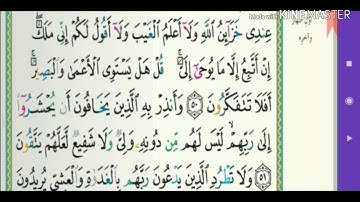 Made with KINEMASTER
عِندِى خَزَآئِنُ ٱللَّهِ وَلَآ أَعْلَمُ ٱلْغَيْبَ وَلَآ أَقُولُ لَكُمْ إِنِّى مَلَكٌ ۖ
إِنْ أَتَّبِعُ إِلَّا مَا يُوحَىٰٓ إِلَىَّ ۚ قُلْ هَلْ يَسْتَوِى ٱلْأَعْمَىٰ وَٱلْبَصِيرُ ۚ
أَفَلَا تَتَفَكَّرُونَ ٥٠ وَأَنذِرْ بِهِ ٱلَّذِينَ يَخَافُونَ أَن يُحْشَرُوٓا۟
إِلَىٰ رَبِّهِمْ ۙ لَيْسَ لَهُم مِّن دُونِهِۦ وَلِىٌّ وَلَا شَفِيعٌ لَّعَلَّهُمْ يَتَّقُونَ
٥١ وَلَا تَطْرُدِ ٱلَّذِينَ يَدْعُونَ رَبَّهُم بِٱلْغَدَوٰةِ وَٱلْعَشِىِّ يُرِيدُونَ